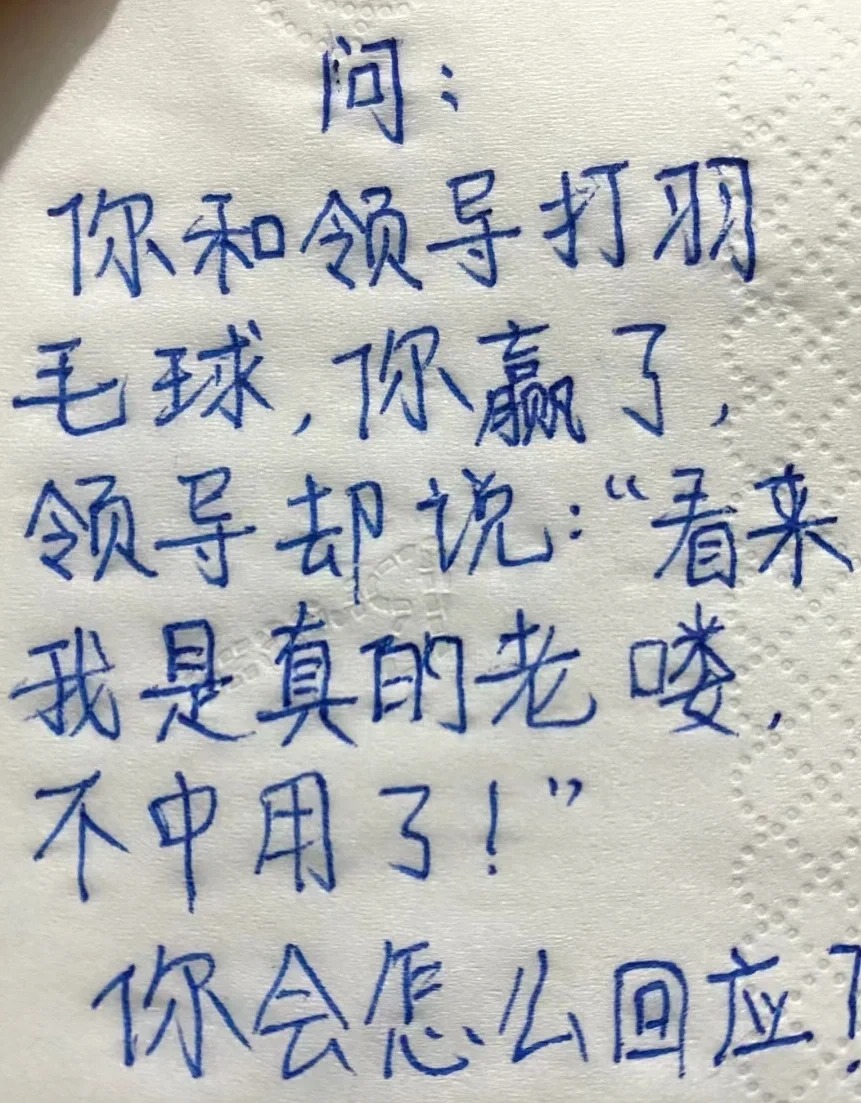 问：
你和领导打羽
毛球，你赢了，
领导却说：“看来
我是真的老喽，
不中用了！”
你会怎么回应？